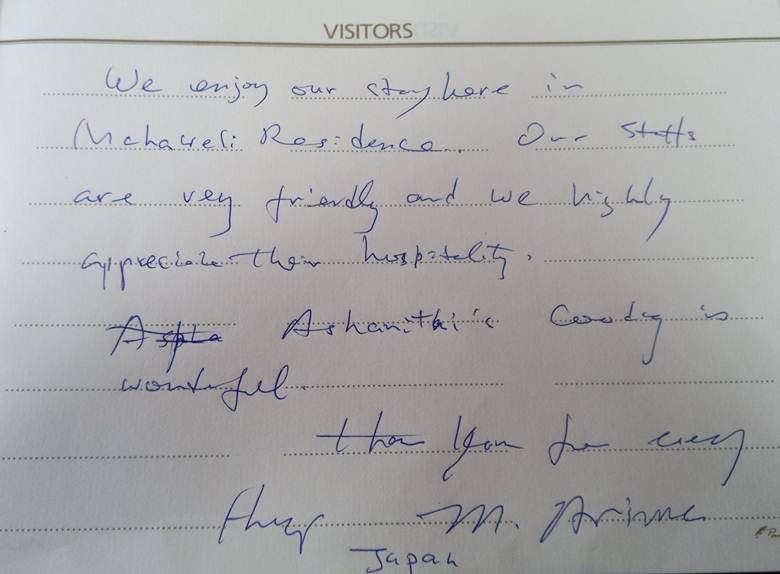 VISITORS
We enjoy our stay here in
Mahaweli Residence. Our Staffs
are very friendly and we highly
appreciate their hospitality.
Ashanithi's Cooking is
wonderful.
thank You for every
thing M. Arima
Japan